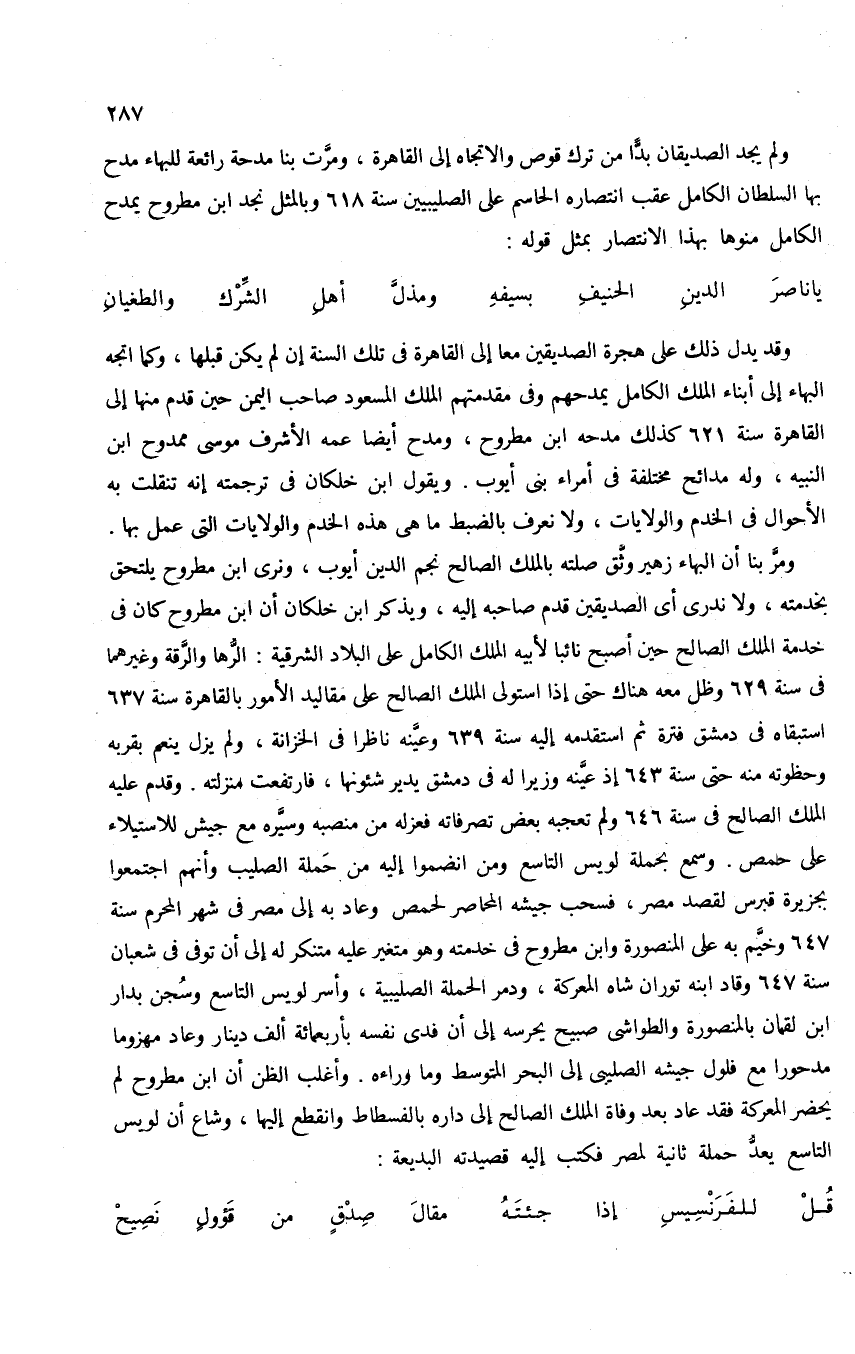 ٢٨٧
ولم يجد الصديقان بدًّا من ترك قوص والاتجاه إلى القاهرة ، ومرَّت بنا مدحة رائعة للبهاء مدح
بها السلطان الكامل عقب انتصاره الحاسم على الصليبيين سنة ٦١٨ وبالمثل نجد ابن مطروح يمدح
الكامل منوها بهذا الانتصار بمثل قوله :
ياناصرَ الدينِ الحنيفِ بسيفهِ ومذلَّ أهلِ الشِّرْك والطغيانِ
وقد يدل ذلك على هجرة الصديقين معا إلى القاهرة فى تلك السنة إن لم يكن قبلها ، وكما اتجه
البهاء إلى أبناء الملك الكامل يمدحهم وفى مقدمتهم الملك المسعود صاحب اليمن حين قدم منها إلى
القاهرة سنة ٦٢١ كذلك مدحه ابن مطروح ، ومدح أيضا عمه الأشرف موسى ممدوح ابن
النبيه ، وله مدائح مختلفة فى أمراء بنى أيوب . ويقول ابن خلكان فى ترجمته إنه تنقلت به
الأحوال فى الخدم والولايات ، ولا نعرف بالضبط ما هى هذه الخدم والولايات التى عمل بها .
ومرَّ بنا أن البهاء زهير وثَّق صلته بالملك الصالح نجم الدين أيوب ، ونرى ابن مطروح يلتحق
بخدمته ، ولا ندرى أى الصديقين قدم صاحبه إليه ، ويذكر ابن خلكان أن ابن مطروح كان فى
خدمة الملك الصالح حين أصبح نائبا لأبيه الملك الكامل على البلاد الشرقية : الرُّها والرَّقة وغيرهما
فى سنة ٦٢٩ وظل معه هناك حتى إذا استولى الملك الصالح على مقاليد الأمور بالقاهرة سنة ٦٣٧
استبقاه فى دمشق فترة ثم استقدمه إليه سنة ٦٣٩ وعيَّنه ناظرا فى الخزانة ، ولم يزل ينعم بقربه
وحظوته منه حتى سنة ٦٤٣ إذ عيَّنه وزيرا له فى دمشق يدير شئونها ، فارتفعت منزلته . وقدم عليه
الملك الصالح فى سنة ٦٤٦ ولم تعجبه بعض تصرفاته فعزله من منصبه وسيَّره مع جيش للاستيلاء
على حمص . وسمع بحملة لويس التاسع ومن انضموا إليه من حَملة الصليب وأنهم اجتمعوا
بجزيرة قبرس لقصد مصر ، فسحب جيشه المحاصر لحمص وعاد به إلى مصر فى شهر المحرم سنة
٦٤٧ وخيَّم به على المنصورة وابن مطروح فى خدمته وهو متغير عليه متنكر له إلى أن توفى فى شعبان
سنة ٦٤٧ وقاد ابنه توران شاه المعركة ، ودمر الحملة الصليبية ، وأسر لويس التاسع وسُجن بدار
ابن لقمان بالمنصورة والطواشى صبيح يحرسه إلى أن فدى نفسه بأربعمائة ألف دينار وعاد مهزوما
مدحورا مع فلول جيشه الصليبى إلى البحر المتوسط وما وراءه . وأغلب الظن أن ابن مطروح لم
يحضر المعركة فقد عاد بعد وفاة الملك الصالح إلى داره بالفسطاط وانقطع إليها ، وشاع أن لويس
التاسع يعدُّ حملة ثانية لمصر فكتب إليه قصيدته البديعة :
قُـلْ لـلفَـرَنْسِـيسِ إذا جـئتَـهُ مقالَ صِدْقٍ من قَؤولٍ نَصِيحْ